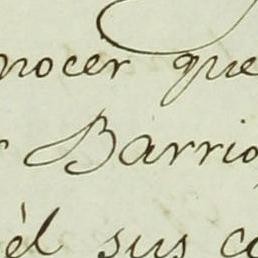 nocer que
r Barrio
él sus co